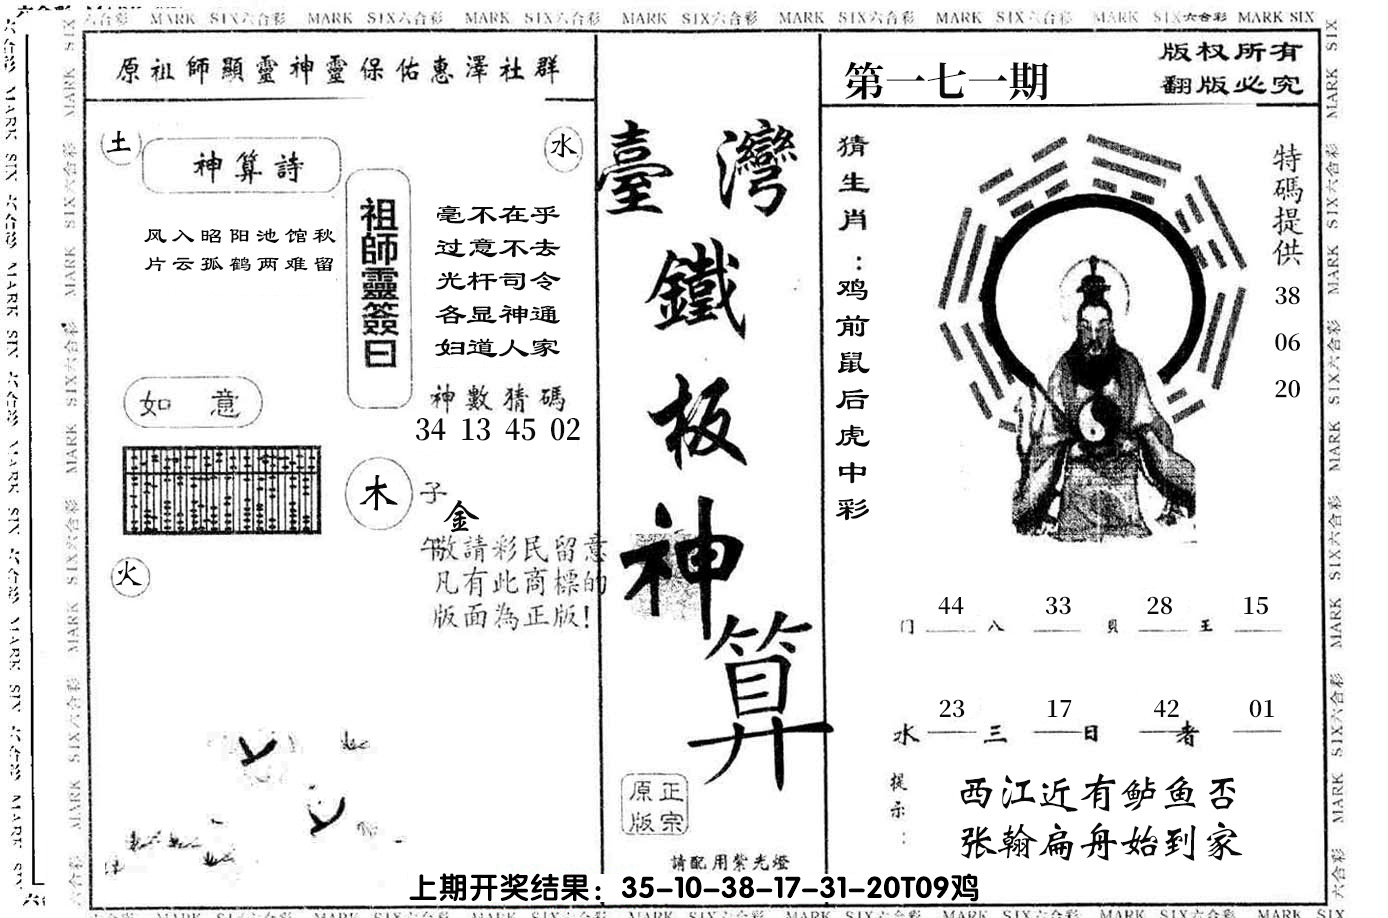 MARK SIX六合彩 MARK SIX六合彩 MARK SIX六合彩 MARK SIX六合彩 MARK SIX六合彩 MARK SIX六合彩 MARK SIX六合彩 MARK SIX
原祖師顯靈神靈保佑惠澤社群
土
神算詩
水
风入昭阳池馆秋
片云孤鹤两难留
祖師靈簽曰
毫不在乎
过意不去
光杆司令
各显神通
妇道人家
神數猜碼
34 13 45 02
如意
木
子
金
午
火
敬請彩民留意
凡有此商標的
版面為正版!
臺灣
鐵
板
神
算
正宗
原版
請配用紫光燈
第一七一期
版权所有
翻版必究
猜生肖:鸡前鼠后虎中彩
特碼提供
38
06
20
44 33 28 15
门 八 貝 王
23 17 42 01
水 三 日 者
提示:
西江近有鲈鱼否
张翰扁舟始到家
上期开奖结果：35-10-38-17-31-20T09鸡